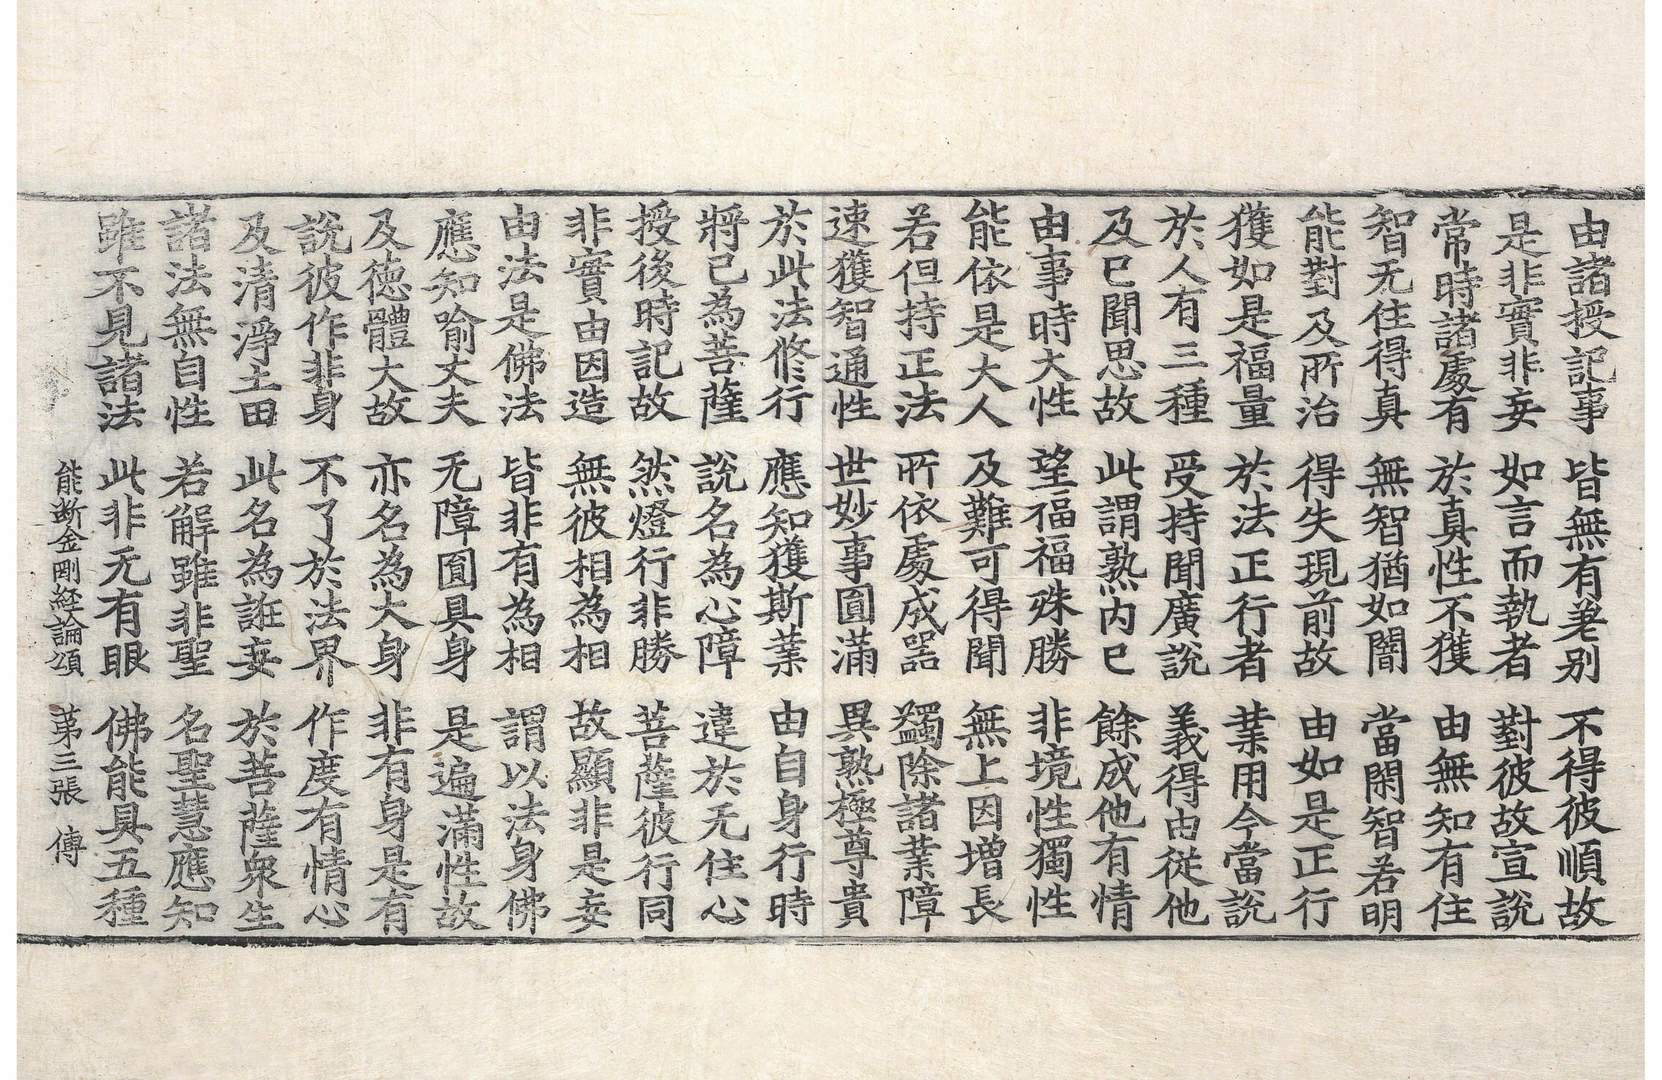 由諸授記事 皆無有差别 不得彼順故
是非實非妄 如言而執者 對彼故宣說
常時諸處有 於真性不獲 由無知有住
智无住得真 無智猶如闇 當閑智若明
能對及所治 得失現前故 由如是正行
獲如是福量 於法正行者 業用今當說
於人有三種 受持聞廣說 義得由従他
及已聞思故 此謂熟内已 餘成他有情
由事時大性 望福福殊勝 非境性獨性
能依是大人 及難可得聞 無上因增長
若但持正法 所依處成器 蠲除諸業障
速獲智通性 世妙事圓滿 異熟極尊貴
於此法修行 應知獲斯業 由自身行時
將已為菩薩 說名為心障 違於无住心
授後時記故 然燈行非勝 菩薩彼行同
非實由因造 無彼相為相 故顯非是妄
由法是佛法 皆非有為相 謂以法身佛
應知喻丈夫 无障圓具身 是遍滿性故
及德體大故 亦名為大身 非有身是有
說彼作非身 不了於法界 作度有情心
及清淨土田 此名為誑妄 於菩薩衆生
諸法無自性 若解雖非聖 名聖慧應知
雖不見諸法 此非无有眼 佛能具五種
能断金剛経論頌 第三張 傅